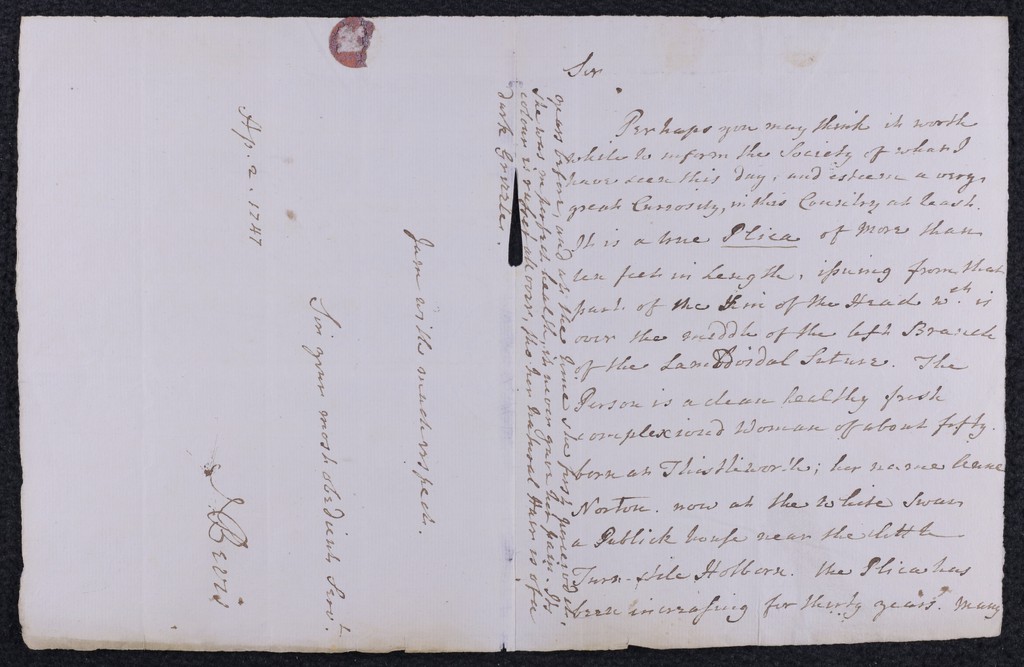 Sir
Perhaps you may think it worth
while to inform the Society of what I
have seen this day, and esteem a very
great Curiosity, in this Country at least.
It is a true Plica of more than
ten feet in Length, issuing from that
part of the Skin of the Head wch. is
over the middle of the left Branch
of the Lambdoidal Suture. The
Person is a clean healthy fresh
complexioned Woman of about fifty.
born at Thistleworth; her name
Norton. now at the White Swan
a Publick house near the little
Turn-stile Holborn. the Plica has
been increasing for thirty years. many
years before, and at the time she first perceived it,
She was in perfect health, it never gave her pain. Its
colour is russet all over, tho her natural Hair is of a
dark Grizzle.
I am with much respect.
Sir your most obedient Servt.
J. Bevis
Ap. 2. 1747